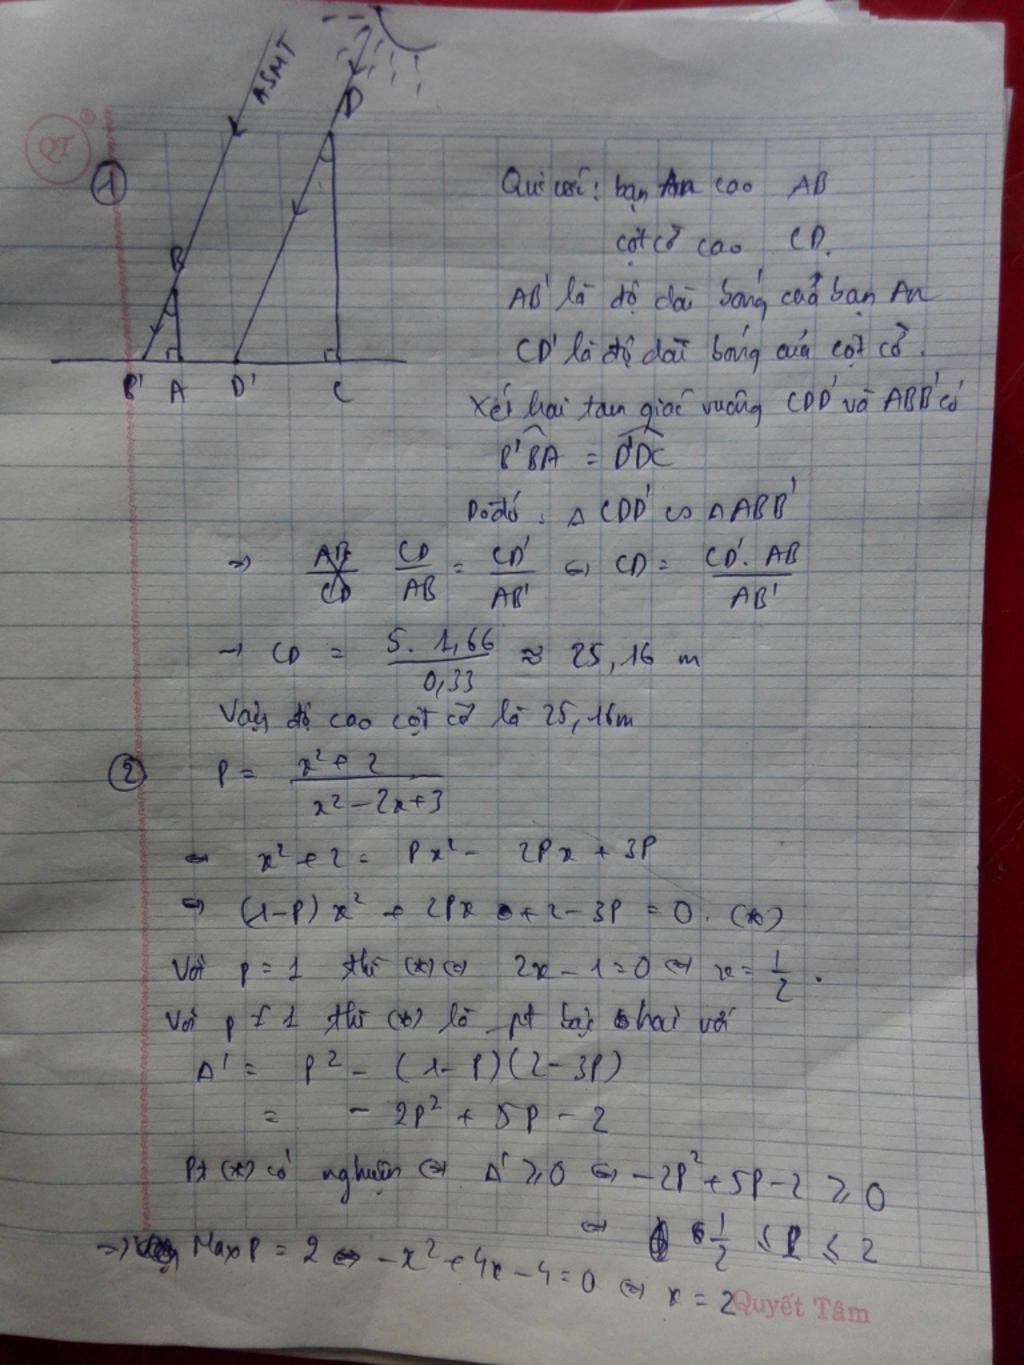 ASMT
QT
①
D
B
B' A D' C
Qui ước: bạn An cao AB
cột cờ cao CD.
AB' là độ dài bóng của bạn An
CD' là độ dài bóng của cột cờ.
Xét hai tam giác vuông CDD' và ABB' có
B'BA = D'DC
Do đó: Δ CDD' ∽ Δ ABB'
→ AB/CD CD/AB = CD'/AB' ⇔ CD = CD'. AB/AB'
→ CD = 5. 1,66/0,33 ≈ 25,16 m
Vậy độ cao cột cờ là 25,16m
② P = x² + 2/x² - 2x + 3
⇔ x² + 2 = Px² - 2Px + 3P
⇔ (1-P) x² + 2Px + 2 - 3P = 0. (*)
Với P = 1 thì (*) ⇔ 2x - 1 = 0 ⇔ x = 1/2.
Với P ≠ 1 thì (*) là pt bậc hai với
Δ' = P² - (1-P)(2-3P)
= - 2P² + 5P - 2
Pt (*) có nghiệm ⇔ Δ' ≥ 0 ⇔ -2P² + 5P - 2 ≥ 0
⇔ 1/2 ≤ P ≤ 2
⇒ Max P = 2 ⇔ -x² + 4x - 4 = 0 ⇔ x = 2
Quyết Tâm